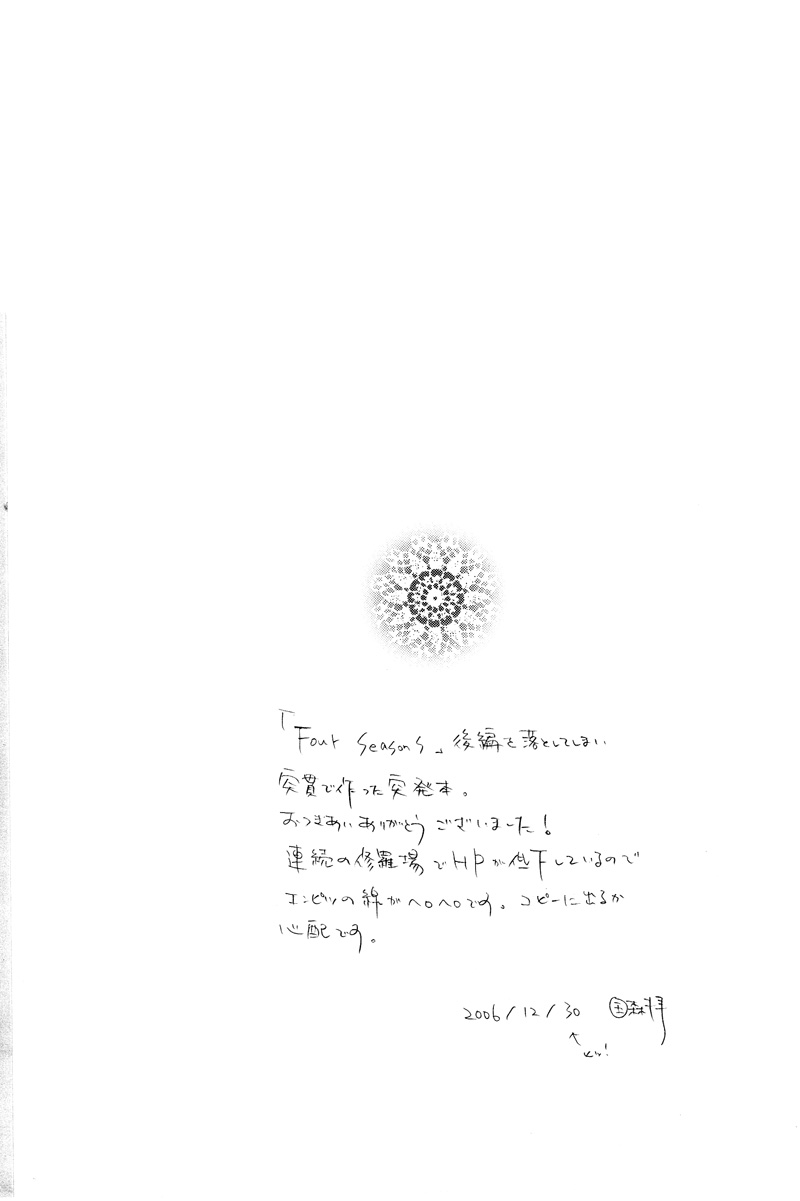 「Four Seasons」後編を落としてしまい
突貫で作った突発本。
おつきあいありがとうございました!
連続の修羅場でHPが低下しているので
エンピツの線がヘロヘロです。コピーに出るか
心配です。
2006/12/30